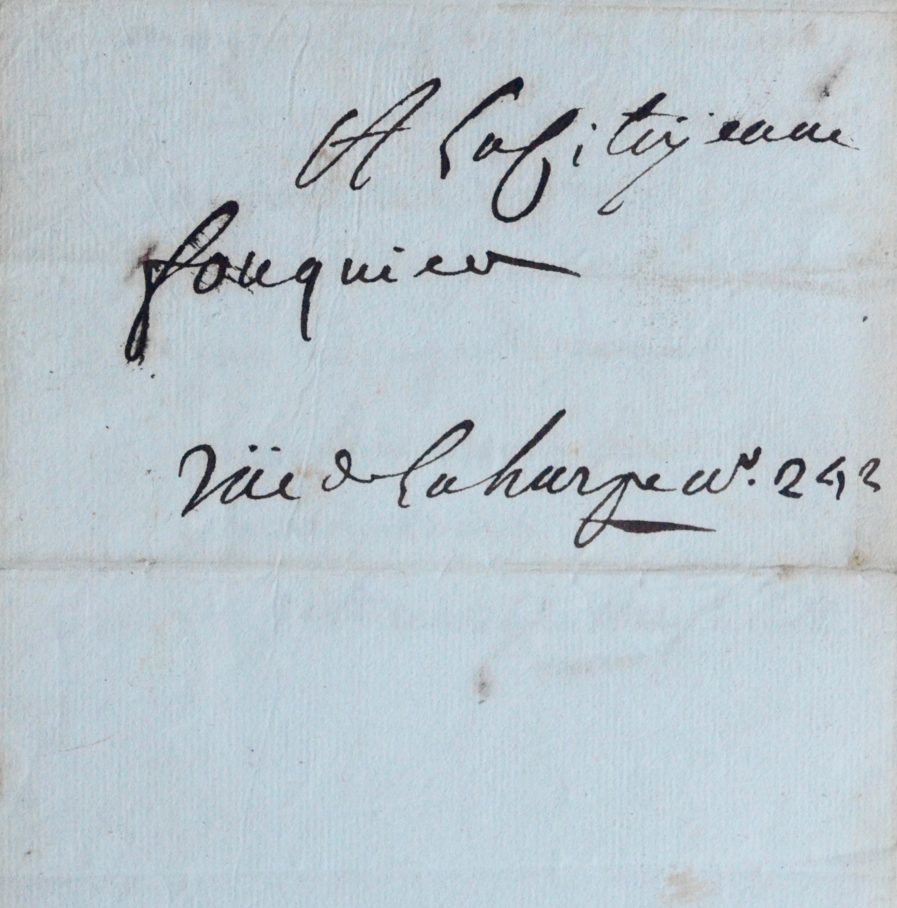 A La Citoyenne
fouquier
Rüe de Laharpe N°. 242